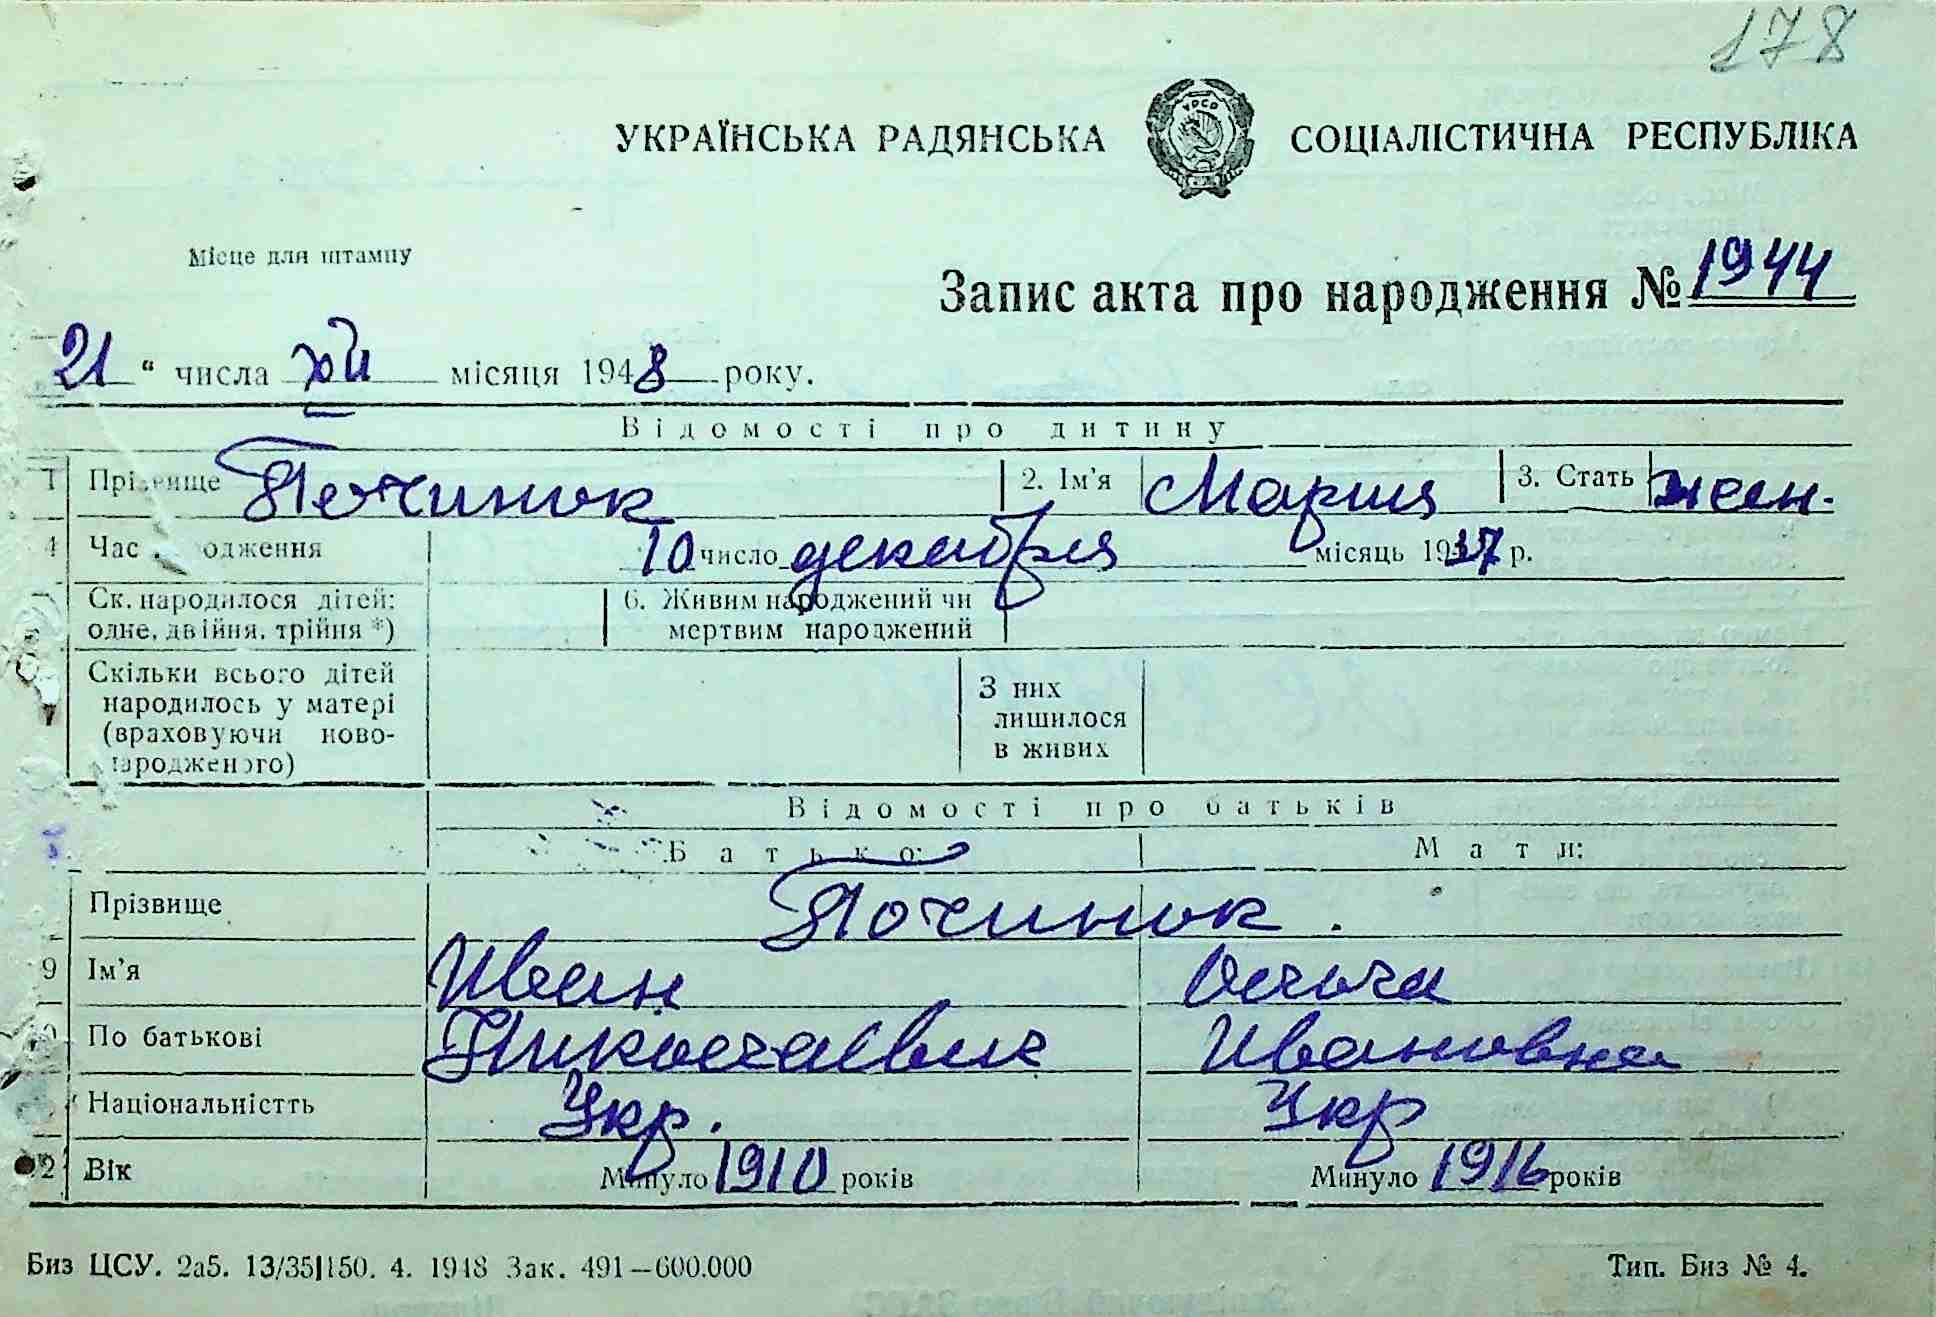 178
УКРАЇНСЬКА РАДЯНСЬКА СОЦІАЛІСТИЧНА РЕСПУБЛІКА
УРСР
Місце для штампу
Запис акта про народження № 1944
21 “ числа XII місяця 1948 року.
Відомості про дитину
1 Прізвище Починок 2. Ім'я Мария 3. Стать жен.
4 Час одження 10 число декабря місяць 1937 р.
Ск. народилося дітей: 6. Живим народжений чи
одне, двійня, трійня *) мертвим народжений
Скільки всього дітей З них
народилось у матері лишилося
(враховуючи ново- в живих
народженого)
Відомості про батьків
Батько: Мати:
Прізвище Починок.
9 Ім'я Иван Ольга
По батькові Николаевич Ивановна
Національністть Укр. Укр
2 Вік Минуло 1910 років Минуло 1916 років
Биз ЦСУ. 2а5. 13/35|150. 4. 1948 Зак. 491—600.000 Тип. Биз № 4.